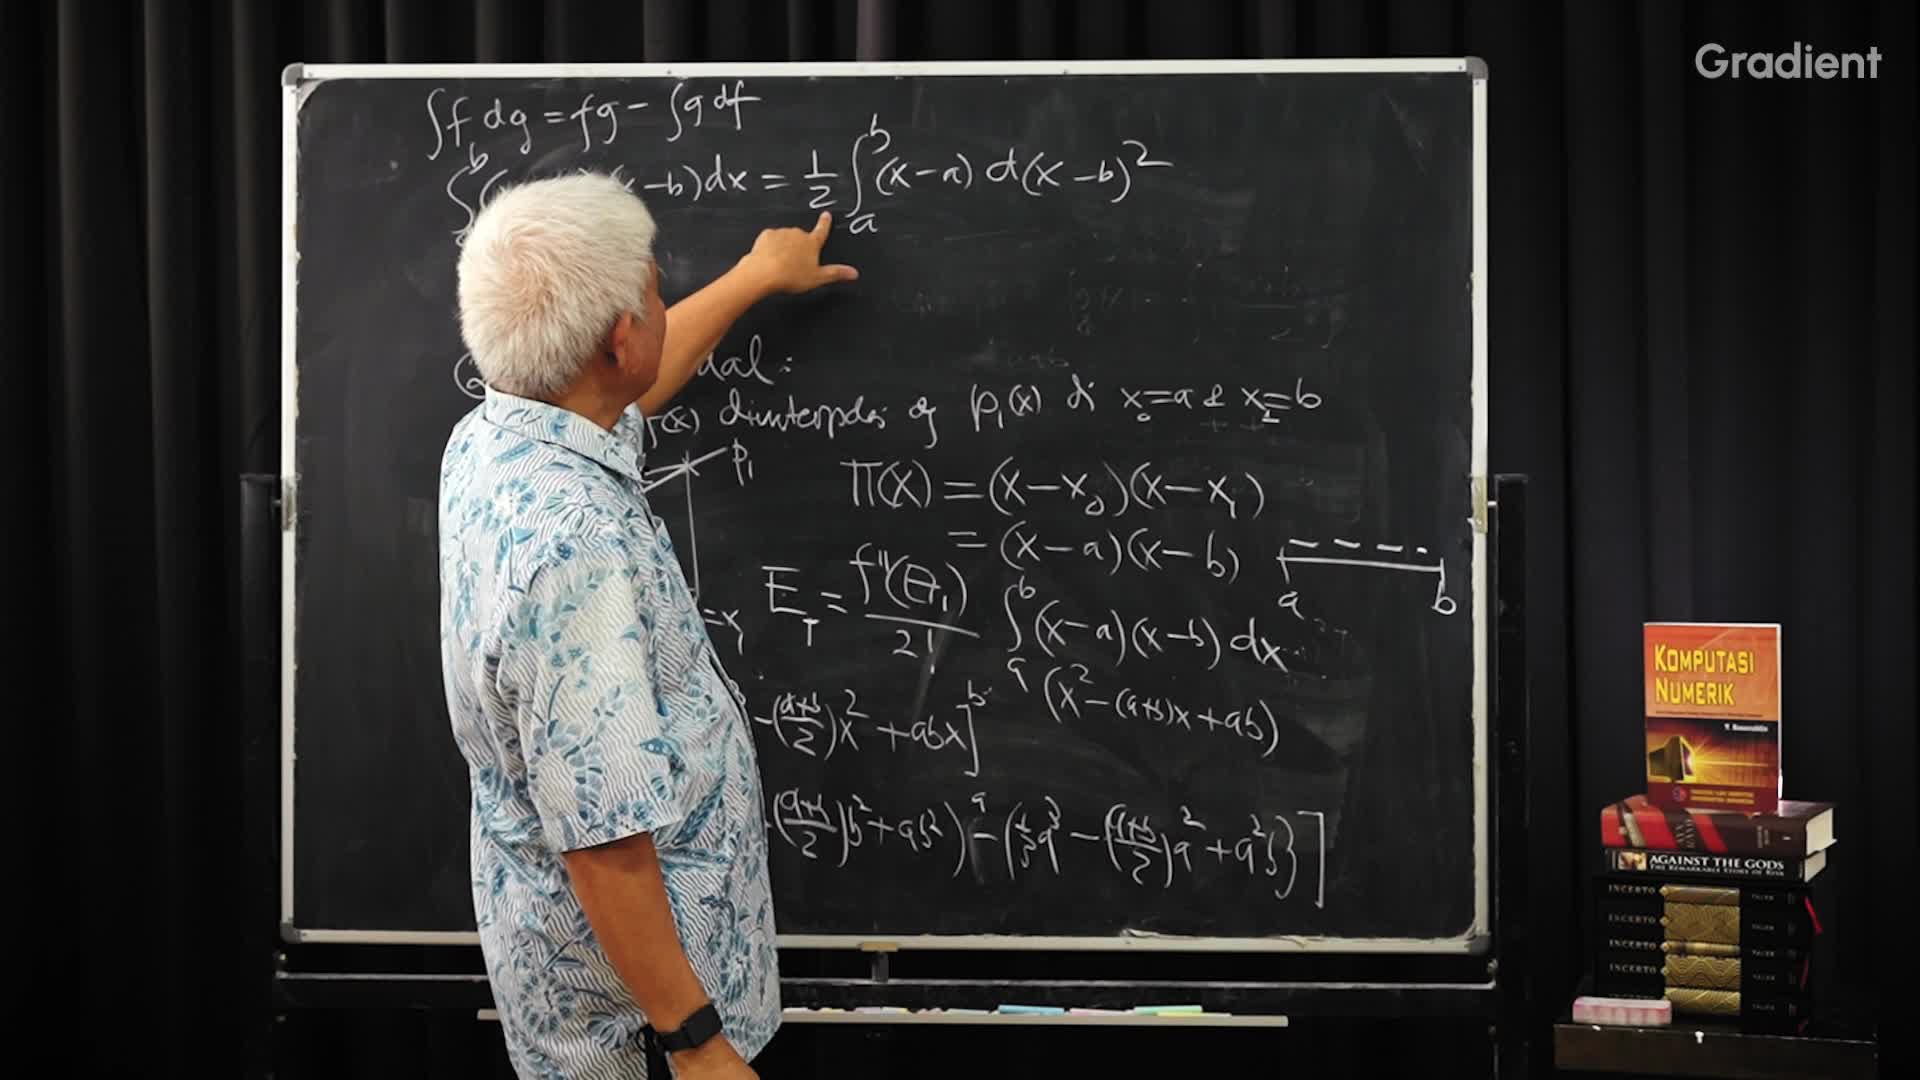 Gradient
∫f dg = fg - ∫g df
-b)dx = 1/2 ∫_a^b (x-a) d(x-b)²
dal:
(x) diinterpolasi dg p₁(x) di x₀=a & x₁=b
p₁
π(x) = (x-x₀)(x-x₁)
= (x-a)(x-b)
a b
=x₁
E_T = f''(θ₁)/2! ∫_a^b (x-a)(x-b) dx
(x² - (a+b)x + ab)
-((a+b)/2)x² + abx]_a^b
((a+b)/2)b² + ab²) - (1/3 a³ - ((a+b)/2)a² + a²b}]
KOMPUTASI
NUMERIK
AGAINST THE GODS
THE REMARKABLE STORY OF RISK
INCERTO TALEB
INCERTO
INCERTO TALEB
INCERTO TALEB
INCERTO